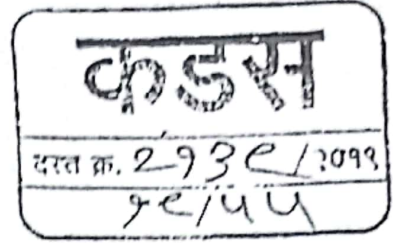 कडस
दस्त क्र. २१३९/२०११
१९/५५